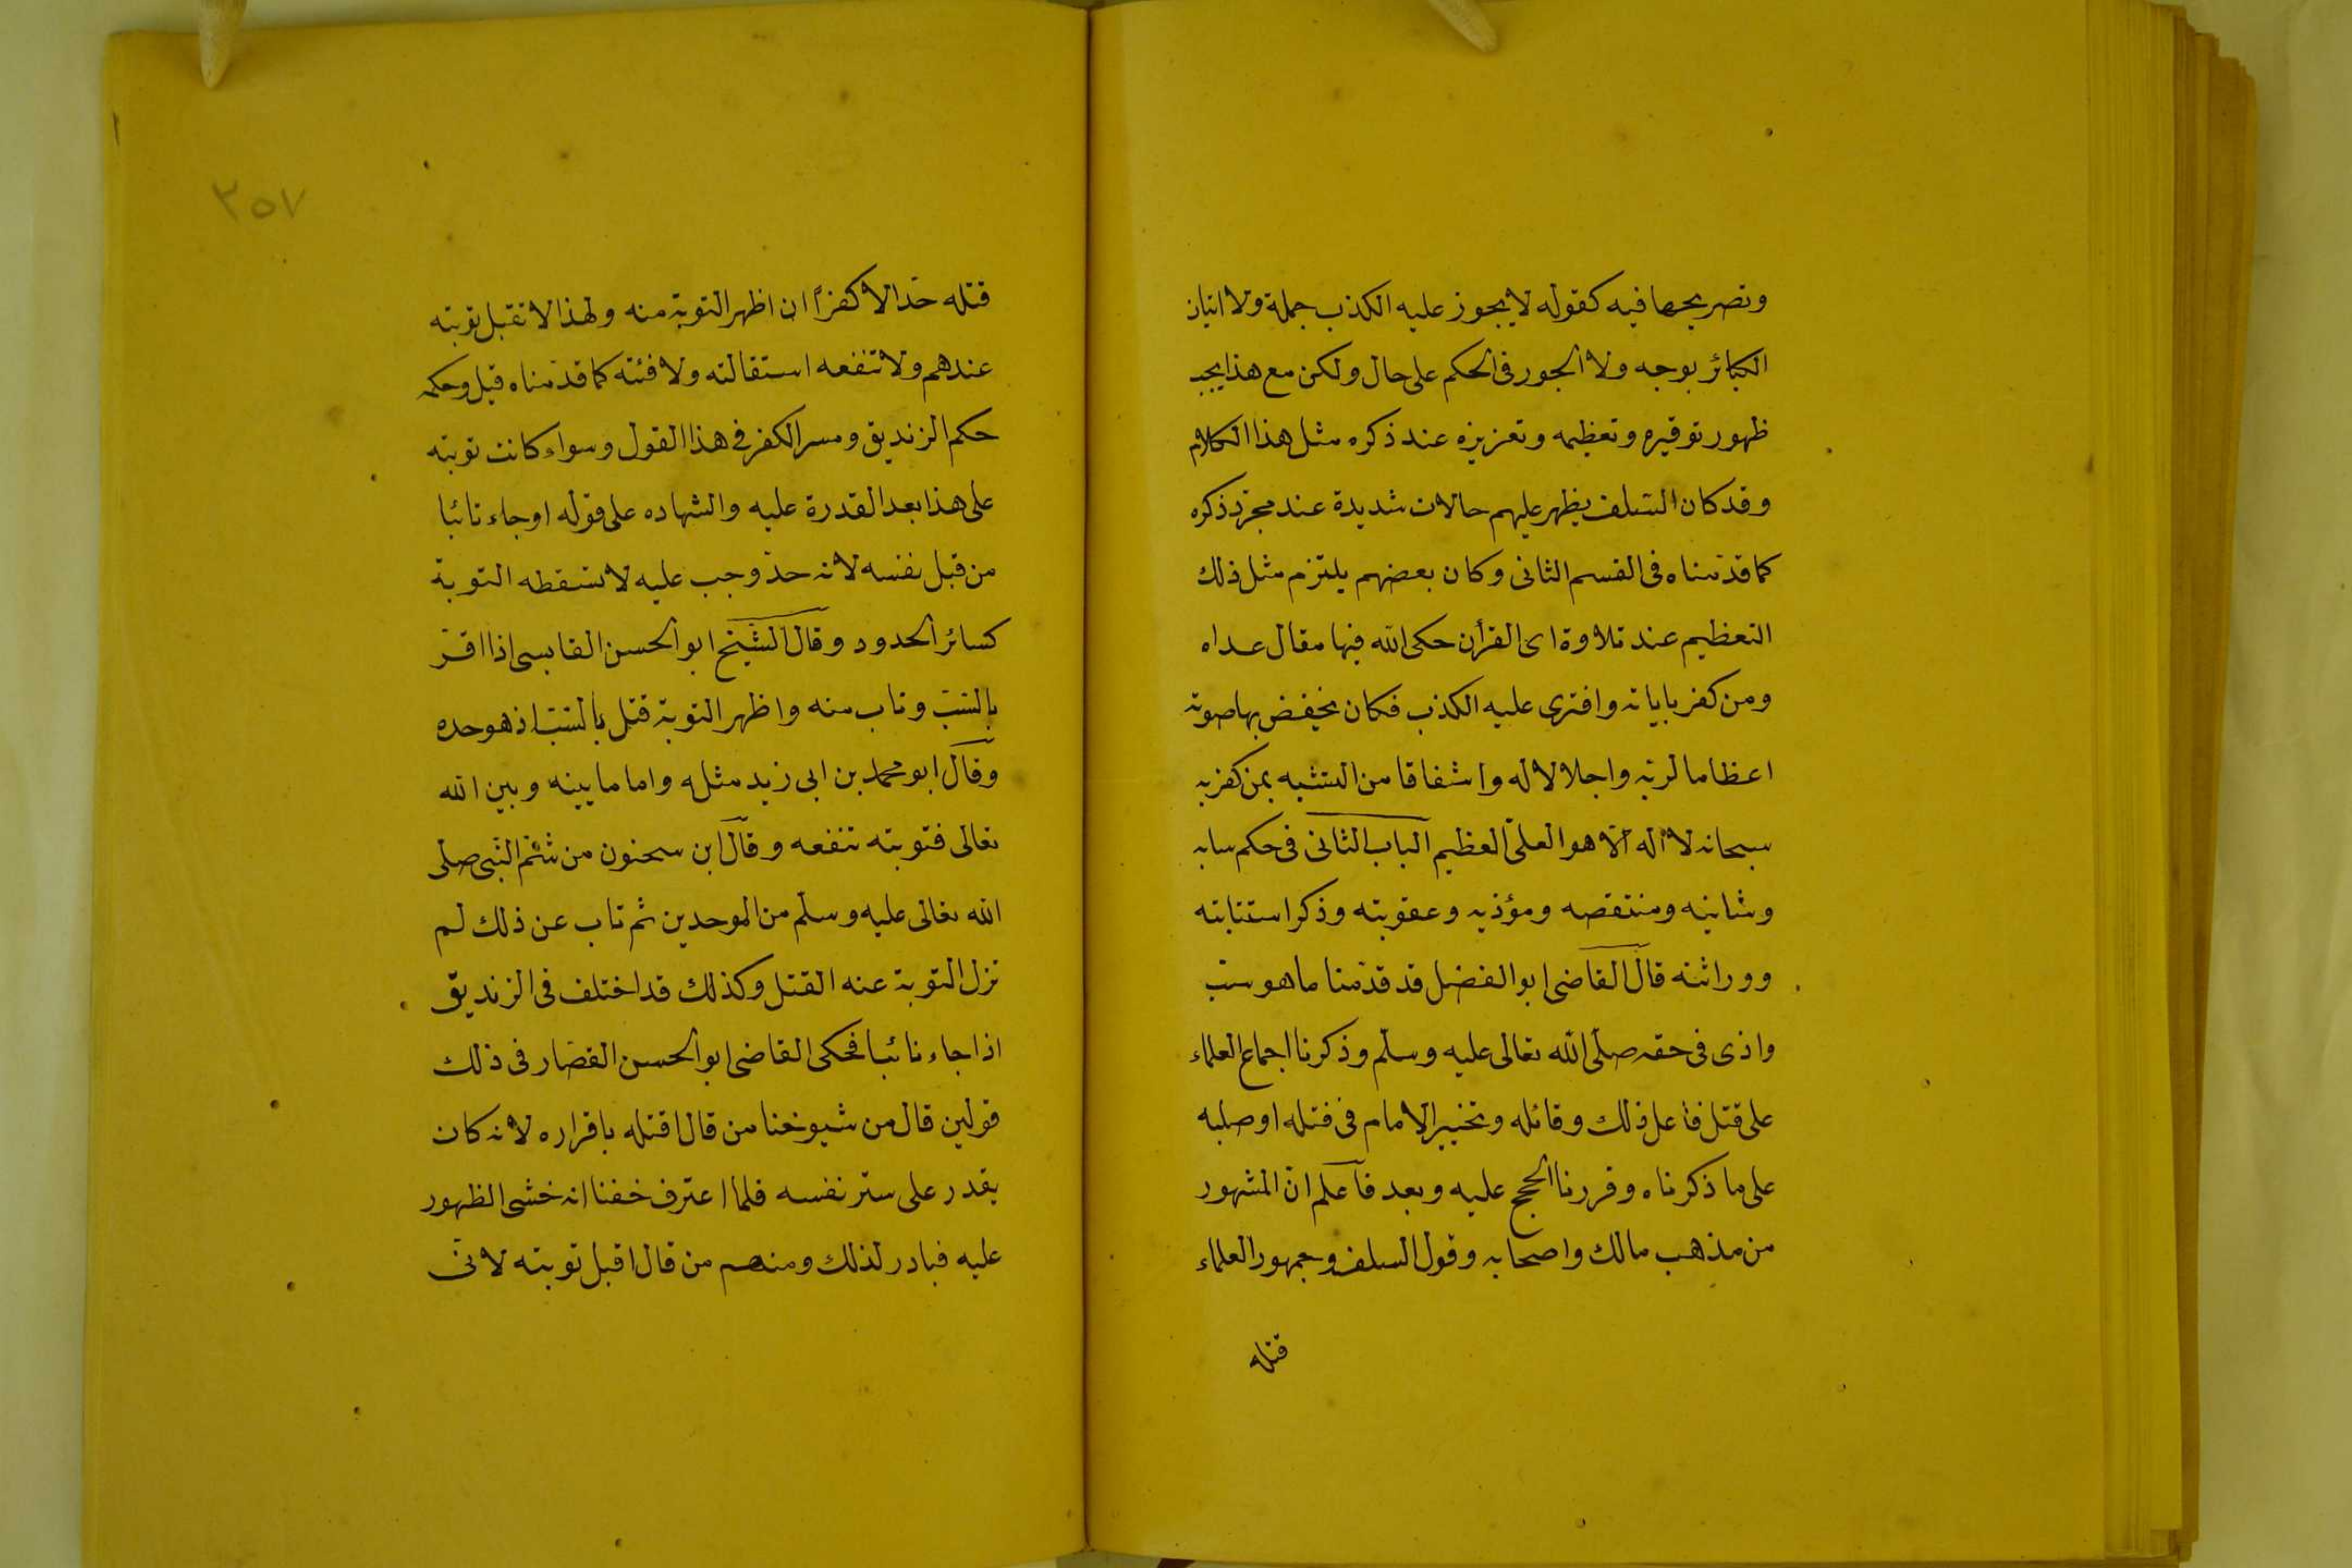 وتصريحها فيه كقوله لا يجوز عليه الكذب جملة ولا اتيان
الكبائر بوجه ولا الجور فى الحكم على حال ولكن مع هذا يجب
ظهور توقيره وتعظيمه وتعزيزه عند ذكره مثل هذا الكلام
وقد كان السّلف يظهر عليهم حالات شديدة عند مجرّد ذكره
كما قدّمناه فى القسم الثانى وكان بعضهم يلتزم مثل ذلك
التعظيم عند تلاوة اى القرأن حكى الله فيها مقال عداه
ومن كفر باياته وافترى عليه الكذب فكان يخفض بها صوته
اعظاما لربه واجلالا له واشفاقا من التشبه بمن كفر به
سبحانه لا اله الّا هو العلىّ العظيم الباب الثانى فى حكم سابه
وشانيه ومنتقصه ومؤذيه وعقوبته وذكر استتابته
ووراثته قال القاضى ابو الفضل قد قدّمنا ما هو سبّ
واذى فى حقه صلّى الله تعالى عليه وسلّم وذكرنا اجماع العلماء
على قتل فاعل ذلك وقائله وتخيير الامام فى قتله او صلبه
على ما ذكرناه وقررنا الحجج عليه وبعد فاعلم انّ المشهور
من مذهب مالك واصحابه وقول السلف وجمهور العلماء
قتله
٢٥٧
قتله حدّا لا كفرًا ان اظهر التوبة منه ولهذا لا تقبل توبته
عندهم ولا تنفعه استقالته ولا فئته كما قدّمناه قبل وحكمه
حكم الزنديق ومسر الكفر فى هذا القول وسواء كانت توبته
على هذا بعد القدرة عليه والشهاده على قوله او جاء تائبا
من قبل نفسه لانه حدّ وجب عليه لا تسقطه التوبة
كسائر الحدود وقال الشيخ ابو الحسن القابسى اذا اقرّ
بالسّبّ وتاب منه واظهر التوبة قتل بالسّبّ اذ هو حده
وقال ابو محمد بن ابى زيد مثله واما ما بينه وبين الله
تعالى فتوبته تنفعه وقال ابن سحنون من شتم النّبى صلى
الله تعالى عليه وسلّم من الموحدين ثم تاب عن ذلك لم
تزل التوبة عنه القتل وكذلك قد اختلف فى الزنديق
اذا جاء تائبا فحكى القاضى ابو الحسن القصّار فى ذلك
قولين قال من شيوخنا من قال اقتله باقراره لانه كان
يقدر على ستر نفسه فلما اعترف خفنا انه خشى الظهور
عليه فبادر لذلك ومنهم من قال اقبل توبته لانّى